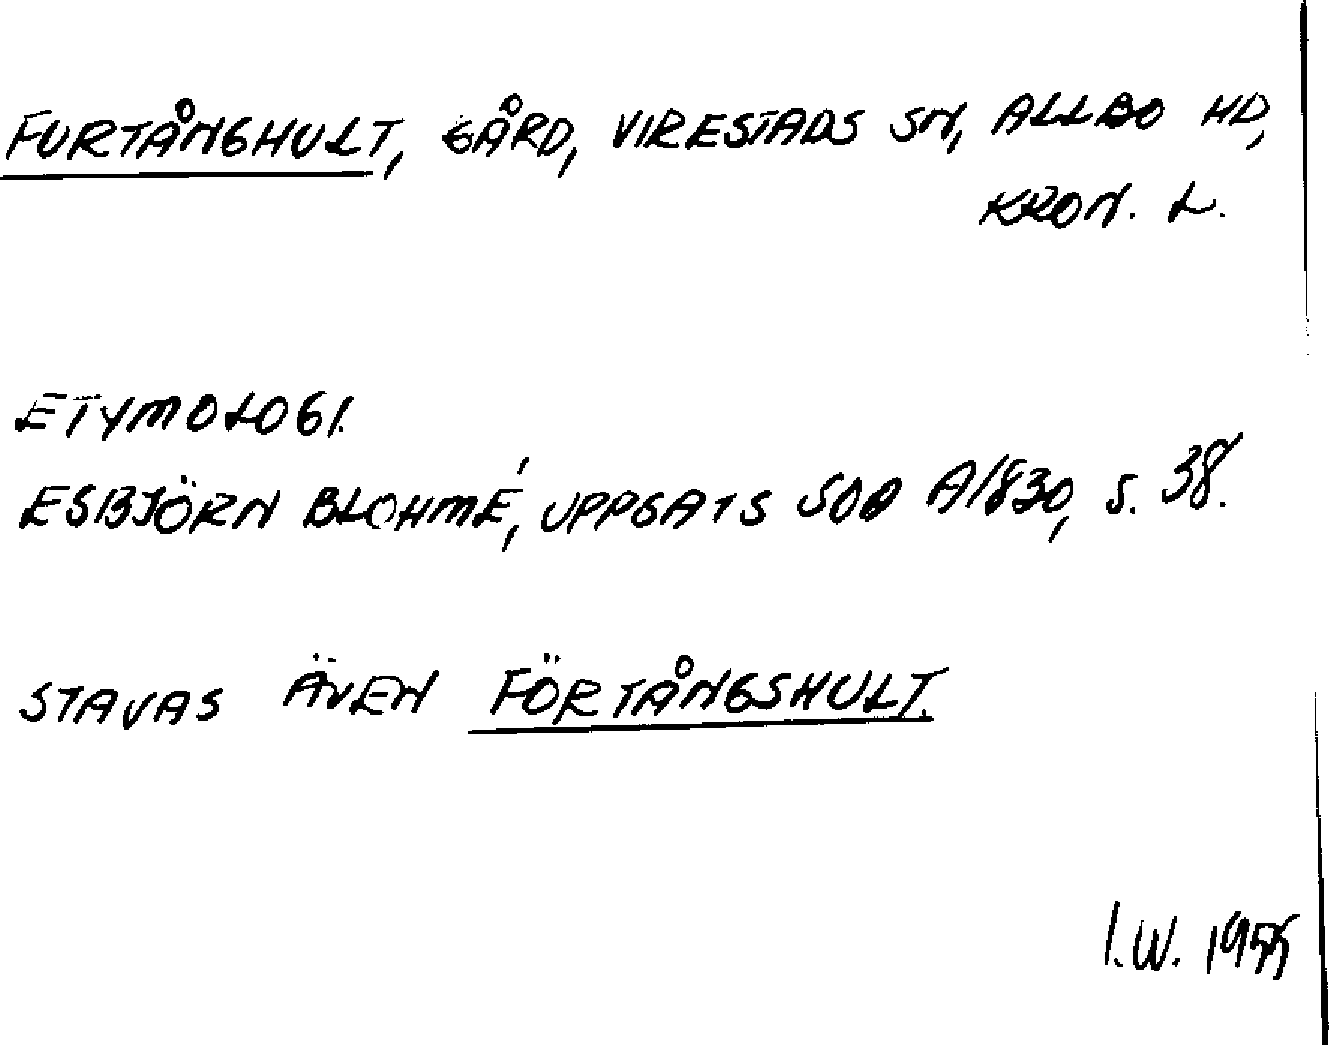 FURTÅNGHULT, GÅRD, VIRESTADS SN, ALLBO HD,
KRON. L.
ETYMOLOGI.
ESBJÖRN BLOHMÉ, UPPSATS SOA A1830, S. 38.
STAVAS ÄVEN FÖRTÅNGSHULT.
I.W. 1955